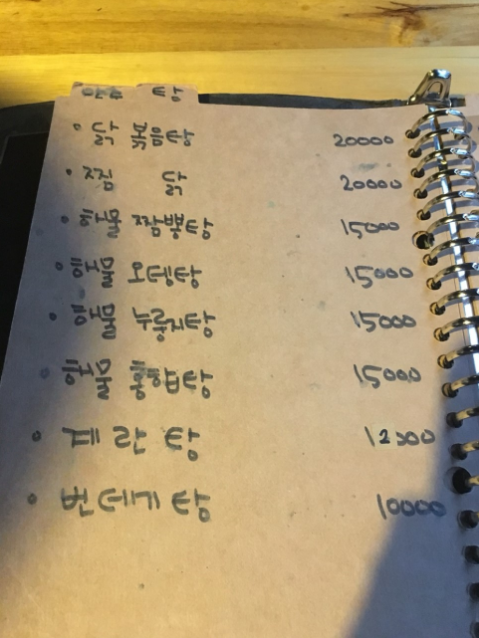 탕
◦ 닭 볶음탕 20000
◦ 찜 닭 20000
◦ 해물 짬뽕탕 15000
◦ 해물 오뎅탕 15000
◦ 해물 누룽지탕 15000
◦ 해물 홍합탕 15000
◦ 계 란 탕 12000
◦ 번데기 탕 10000